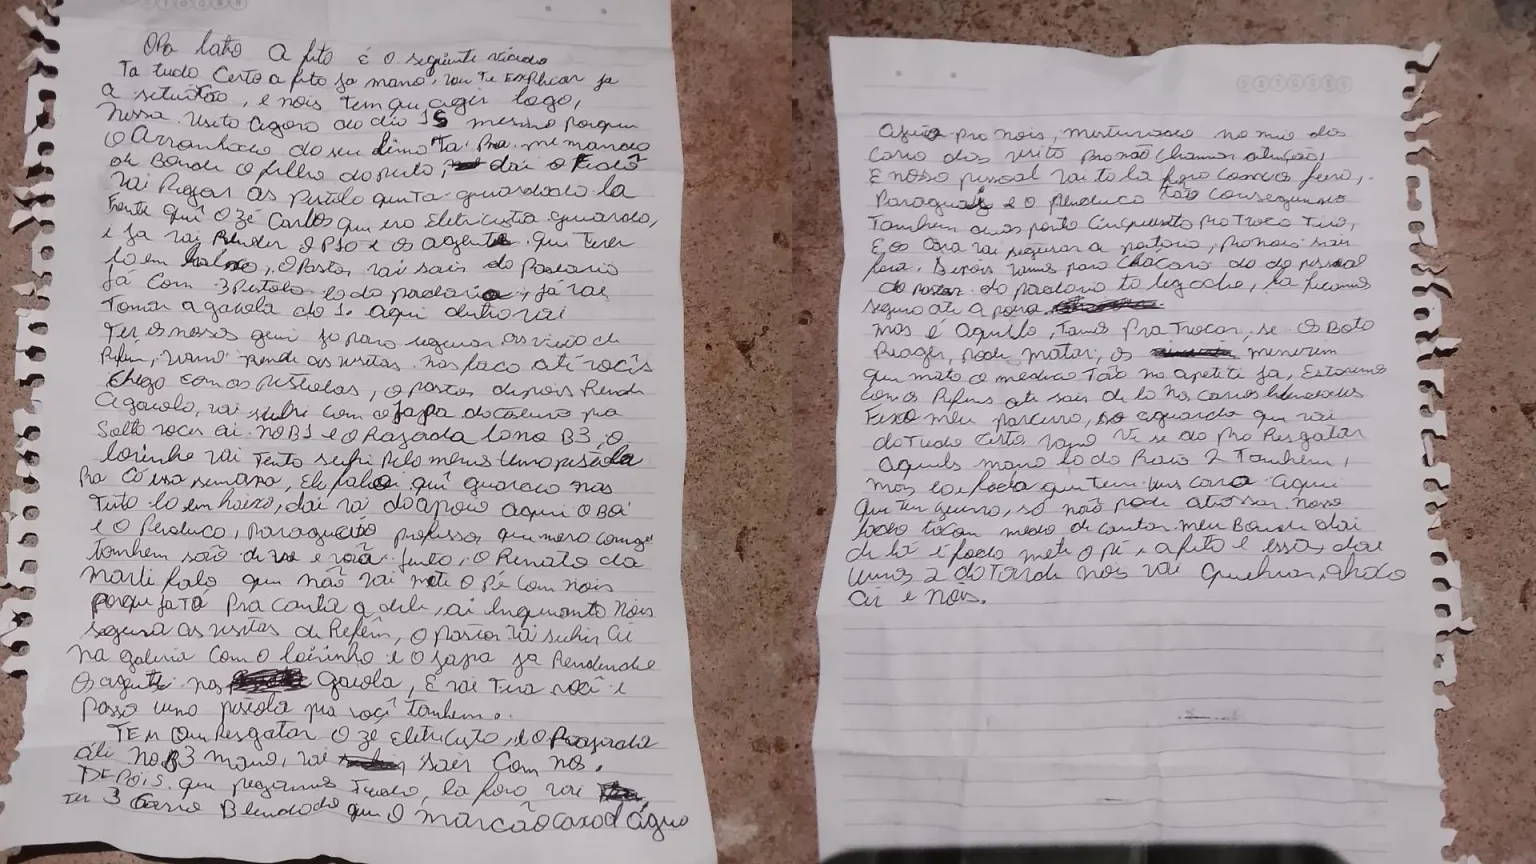 OPa latro A fito é o seguinte viado
Ta tudo Certo a fito ja mano, vou Te Explicar ja
a setuação, e nois tem que agir logo,
Nessa visita Agora do dia 15 mesmo porque
O Arranhado do seu dino Ta Pra me manda
de Bonde o filho do puto, dai o
Vai Pegar As Pistola qunta guardado la
Frente qui O zé Carlos que era Eletricista guardo,
e ja vai Render O P10 e os agente que Tiver
la em baixo, O Pastor vai sair do Padaria
já Com 3 Pistola la do padaria, já vai
Tomar a gaiola do 1. aqui dentro vai
Ter os nosso gera ja para segurar as visita de
Refém, vamo rende as visitas nas faca até vocês
Chega com as pistolas, O pastor depois Rende
A gaiola, vai subi com o Japa do Caluro pra
Solta voces ai no B1 e o Rajada la no B3, O
loirinho vai Tenta subi pelo menos Uma pistola
Pra Cá essa semana, Ele falo qui guardo nas
Teto la em baixo, dai vai da apoio aqui O Boi
e O Penduco, Paraguaito professor que mora comigo
Tambem são de vera e vão junto, O Renato da
Marli falo que não vai mete O Pé Com Nois
porque já Tá Pra Canta a dele, ai Enquanto Nois
segura as visitas de Refém, O pastor vai subir Ai
na galeria com O loirinho e O Japa ja Rendendo
Os agente nas Gaiola, E vai Tira você e
Passa uma pistola pra você Tambem.
TEM Que Resgatar O zé Eletricisto, e o Rajada
ali NO B3 mano, vai sair Com nos.
DEPOIS que pegarmos Tudo, la fora vai
Ter 3 Carro Blindado que O marcão caxa d'água
pro nois, misturado no meio dos
carro das visita pra não Chamar atenção,
E nosso pessoal vai ta la fora
Paraguai e o Penduco Tão Conseguindo
Tambem duas ponto Cinquenta pro Troca Tiro,
E os Cara vai segurar a portaria, pra nois sair
fora. Depois vamos para Chacara do do pessoal
do pastor do padaria ta ligado he, la ficamos
seguro até a
mas é aquilo, Tamo Pra Trocar, se Os Bota
Reagir, pode matar, os meninim
que mato o medico Tão no apetiti ja, Estaremos
com os Refens ate sair de la Nos carros blindados
Fexo meu parceiro, so aguardo que vai
da Tudo Certo vamo vê se da pra Resgatar
aquels mano la do Raio 2 Tambem,
mas la e foda que tem uns cara Aqui
Que Ter Guerra, só não pode atrasar Nosso
lado tocam medo de cantar meu Bonde dai
de la é foda mete o pé, a fito e essa, das
umas 2 da Tarde Nos vai Quebrar,
Ai e Nois.